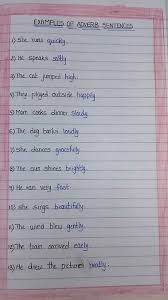 EXAMPLES OF ADVERB SENTENCES
1) She runs quickly.
2) He speaks softly
3) The cat jumped high.
4) They played outside happily
5) Mom cooks dinner slowly.
6) The dog barks loudly
7) She dances gracefully.
8) The sun shines brightly.
9) He ran very fast.
10) She sings beautifully
11) The wind blew gently.
12) The train arrived early.
13) He drew the pictures neatly.